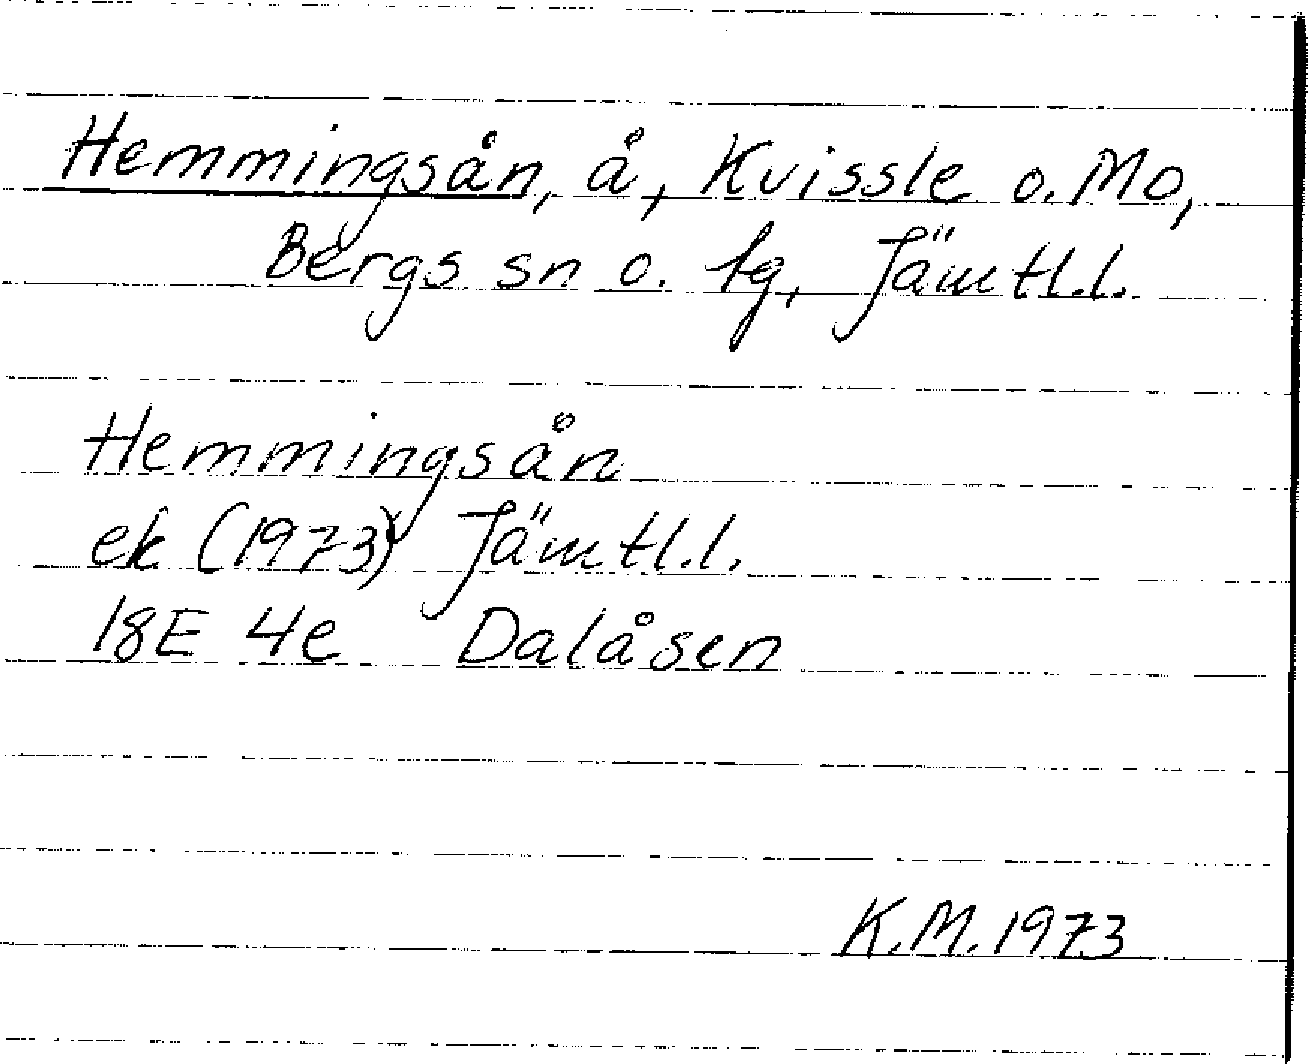 Hemmingsån, å, Kvissle o. Mo,
Bergs sn o. tg, Jämtl.l.
Hemmingsån
ek (1973) Jämtl.l.
18E 4e Dalåsen
K.M. 1973